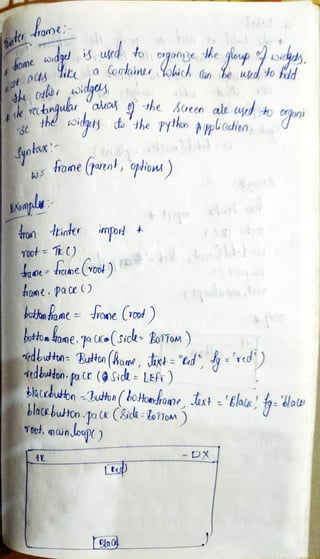 Tkinter frame:-
* frame widget is used to organize the group of widgets.
* It acts like a Container, Which Can be used to hold
the other widgets.
* the rectangular areas of the Screen are used to organi
-se the widgets to the python application.
Syntax:-
w = frame (parent, options)
Example:-
from tkinter import *
root = TK ()
frame = frame (root)
frame. pack ()
bottomframe = frame (root)
bottomframe. pack (side = BOTTOM)
redbutton = Button (frame, text = "Red", fg = 'red')
redbutton. pack (Side = LEFT)
blackbutton = Button (bottomframe, text = 'Black', fg = 'black
blackbutton. pack (Side = BOTTOM)
root. mainloop()
tk - □ X
Red
Black